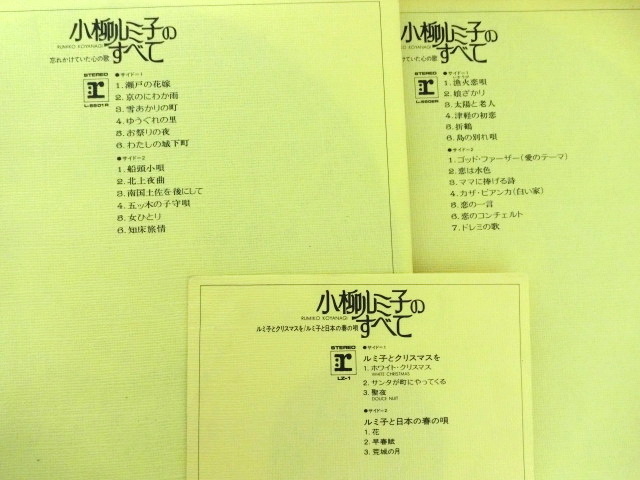 小柳ルミ子の
すべて
RUMIKO KOYANAGI
忘れかけていた心の歌
STEREO
r
L-5501R
●サイド-1
1.瀬戸の花嫁
2.京のにわか雨
3.雪あかりの町
4.ゆうぐれの里
5.お祭りの夜
6.わたしの城下町
●サイド-2
1.船頭小唄
2.北上夜曲
3.南国土佐を後にして
4.五ッ木の子守唄
5.女ひとり
6.知床旅情
小柳ルミ子の
すべて
RUMIKO KOYANAGI
忘れかけていた心の歌
STEREO
r
●サイド-1
1.漁火恋唄
2.娘ざかり
3.太陽と老人
4.津軽の初恋
5.折鶴
6.島の別れ唄
●サイド-2
1.ゴッド・ファーザー(愛のテーマ)
2.恋は水色
3.ママに捧げる詩
4.カザ・ビアンカ(白い家)
5.恋の一言
6.恋のコンチェルト
7.ドレミの歌
小柳ルミ子の
すべて
RUMIKO KOYANAGI
ルミ子とクリスマスを/ルミ子と日本の春の唄
STEREO
r
LZ-1
●サイド-1
ルミ子とクリスマスを
1.ホワイト・クリスマス
WHITE CHRISTMAS
2.サンタが町にやってくる
3.聖夜
DOUCE NUIT
●サイド-2
ルミ子と日本の春の唄
1.花
2.早春賦
3.荒城の月